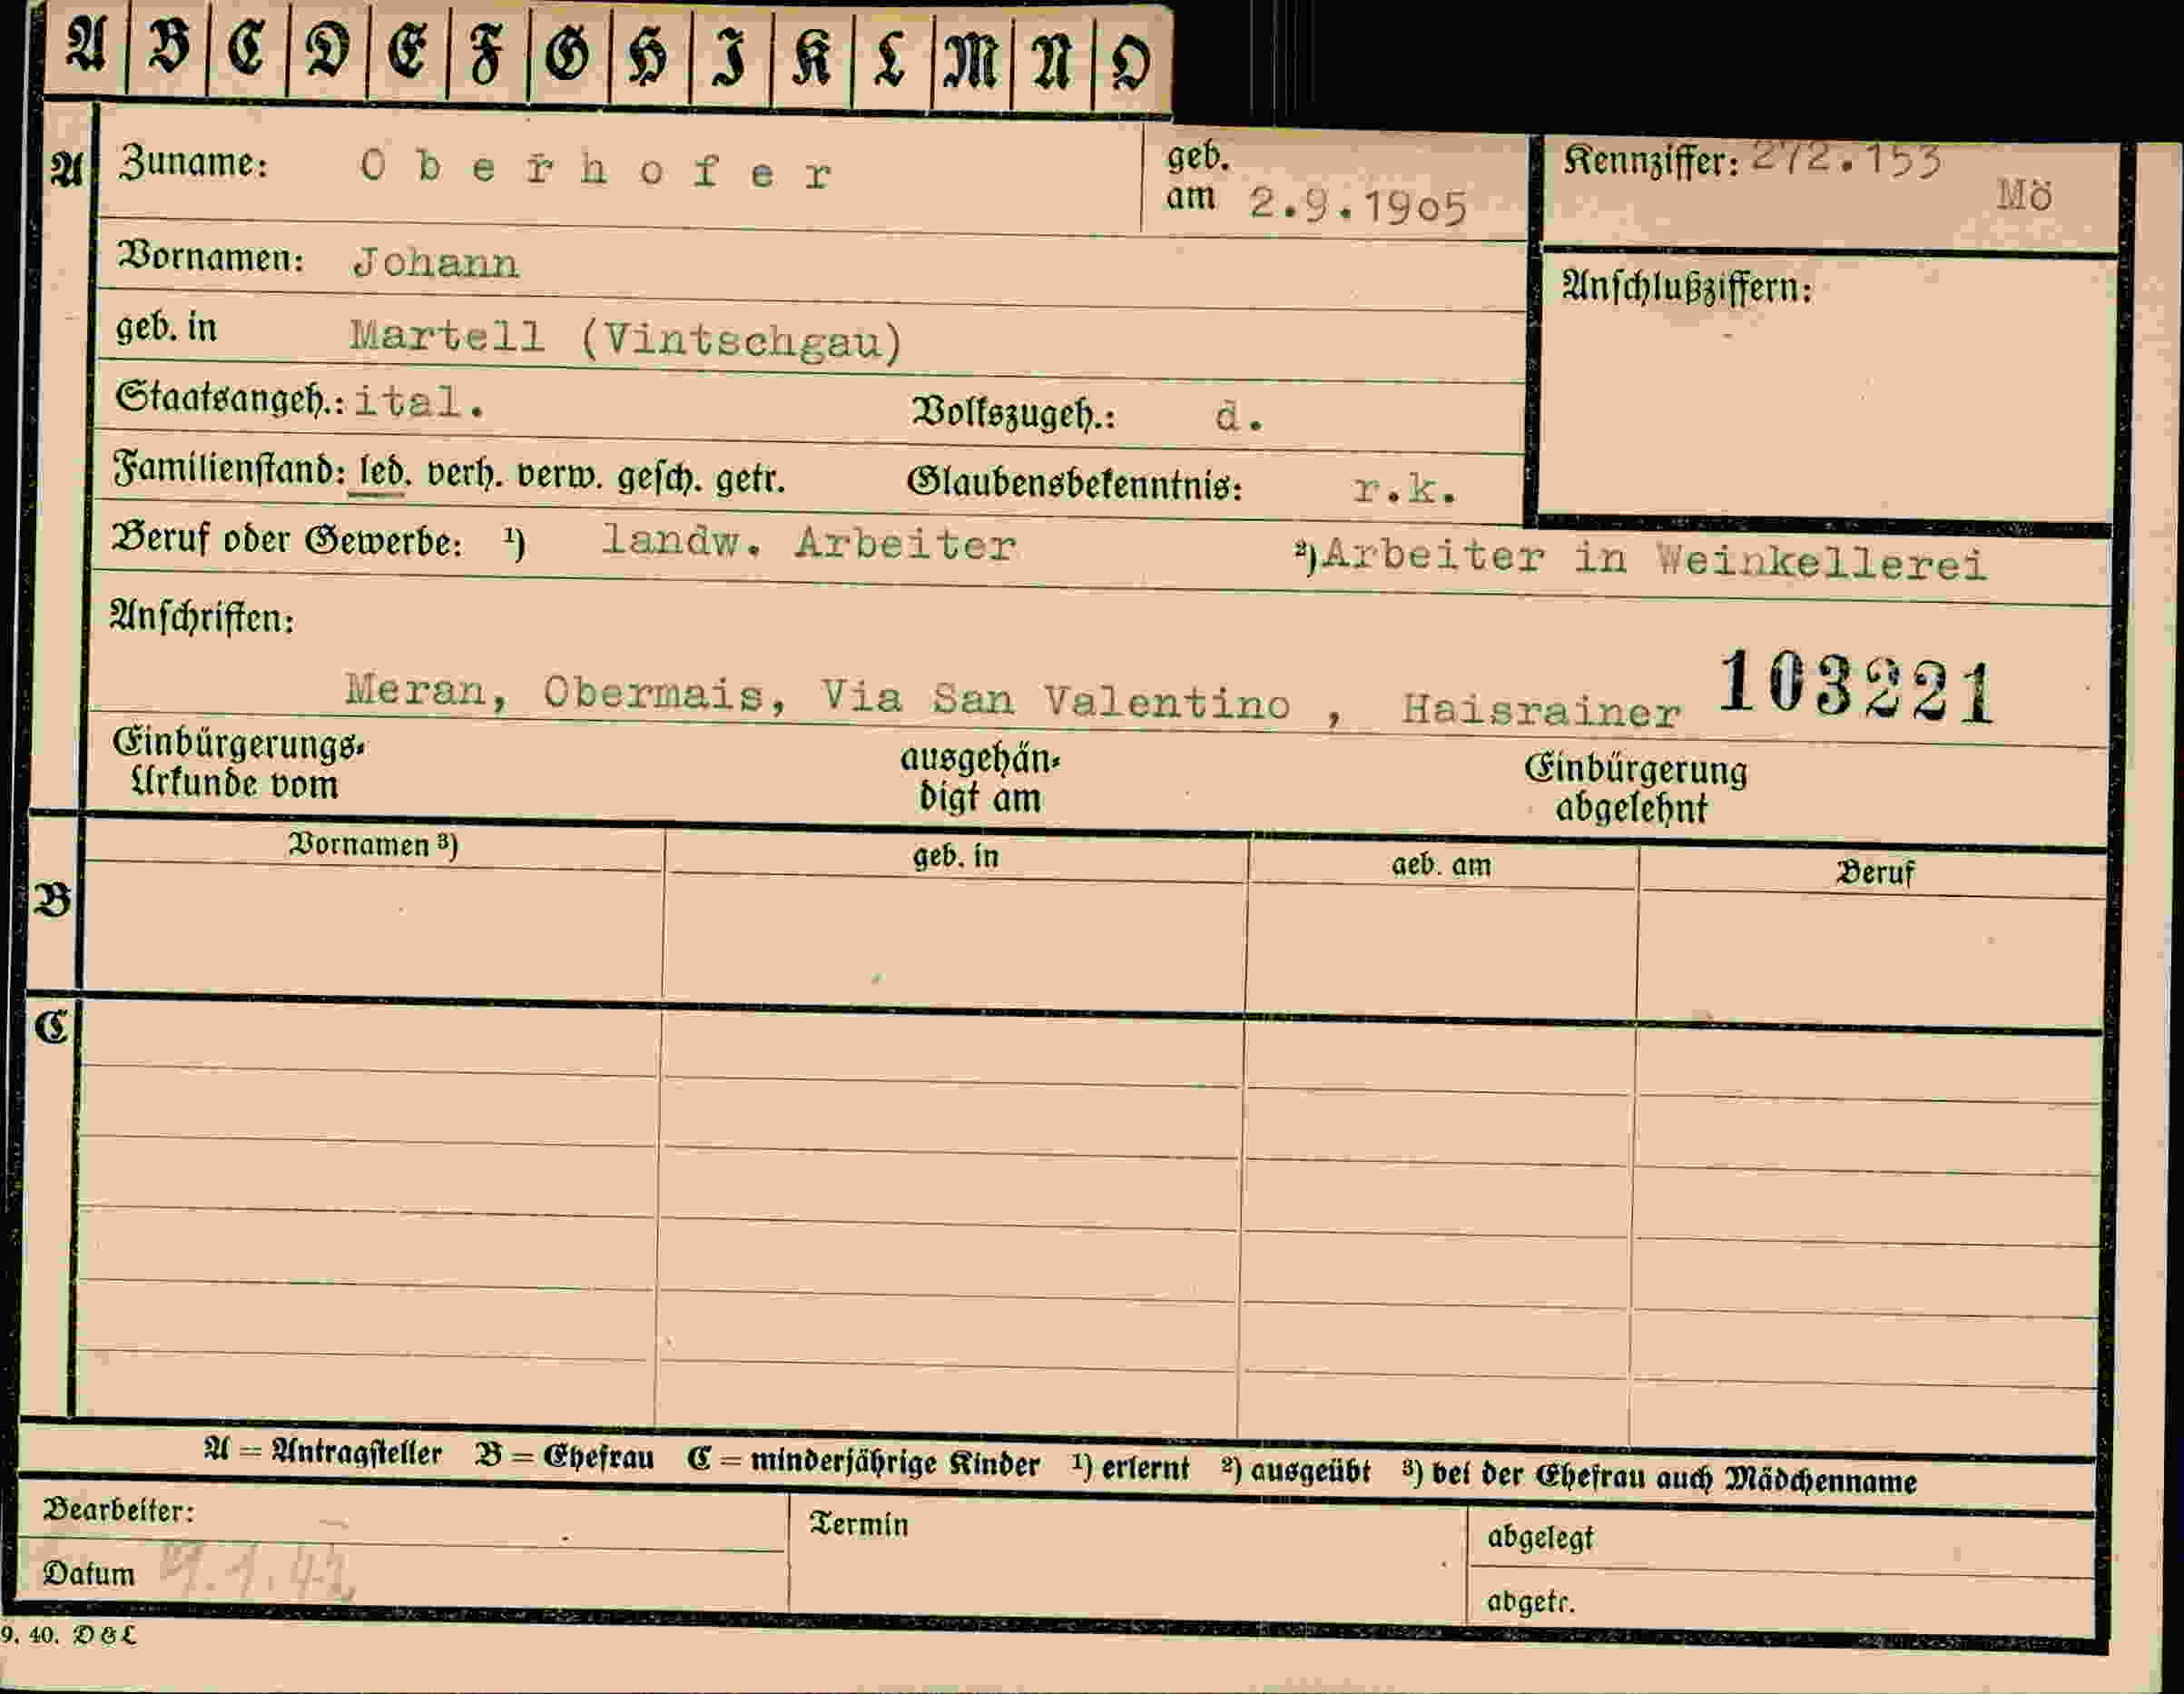 A B C D E F G H I K L M N O
A Zuname: Oberhofer geb. am 2.9.1905 Kennziffer: 272.153 Mö
Vornamen: Johann Anschlußziffern:
geb. in Martell (Vintschgau)
Staatsangeh.: ital. Volkszugeh.: d.
Familienstand: led. verh. verw. gesch. getr. Glaubensbekenntnis: r.k.
Beruf oder Gewerbe: ¹) landw. Arbeiter ²) Arbeiter in Weinkellerei
Anschriften:
Meran, Obermais, Via San Valentino , Haisrainer 103221
Einbürgerungs- ausgehän- Einbürgerung
Urkunde vom digt am abgelehnt
Vornamen ³) geb. in geb. am Beruf
B
C
A = Antragsteller B = Ehefrau C = minderjährige Kinder ¹) erlernt ²) ausgeübt ³) bei der Ehefrau auch Mädchenname
Bearbeiter: Termin abgelegt
Datum 9.1.42 abgetr.
9. 40. D & L